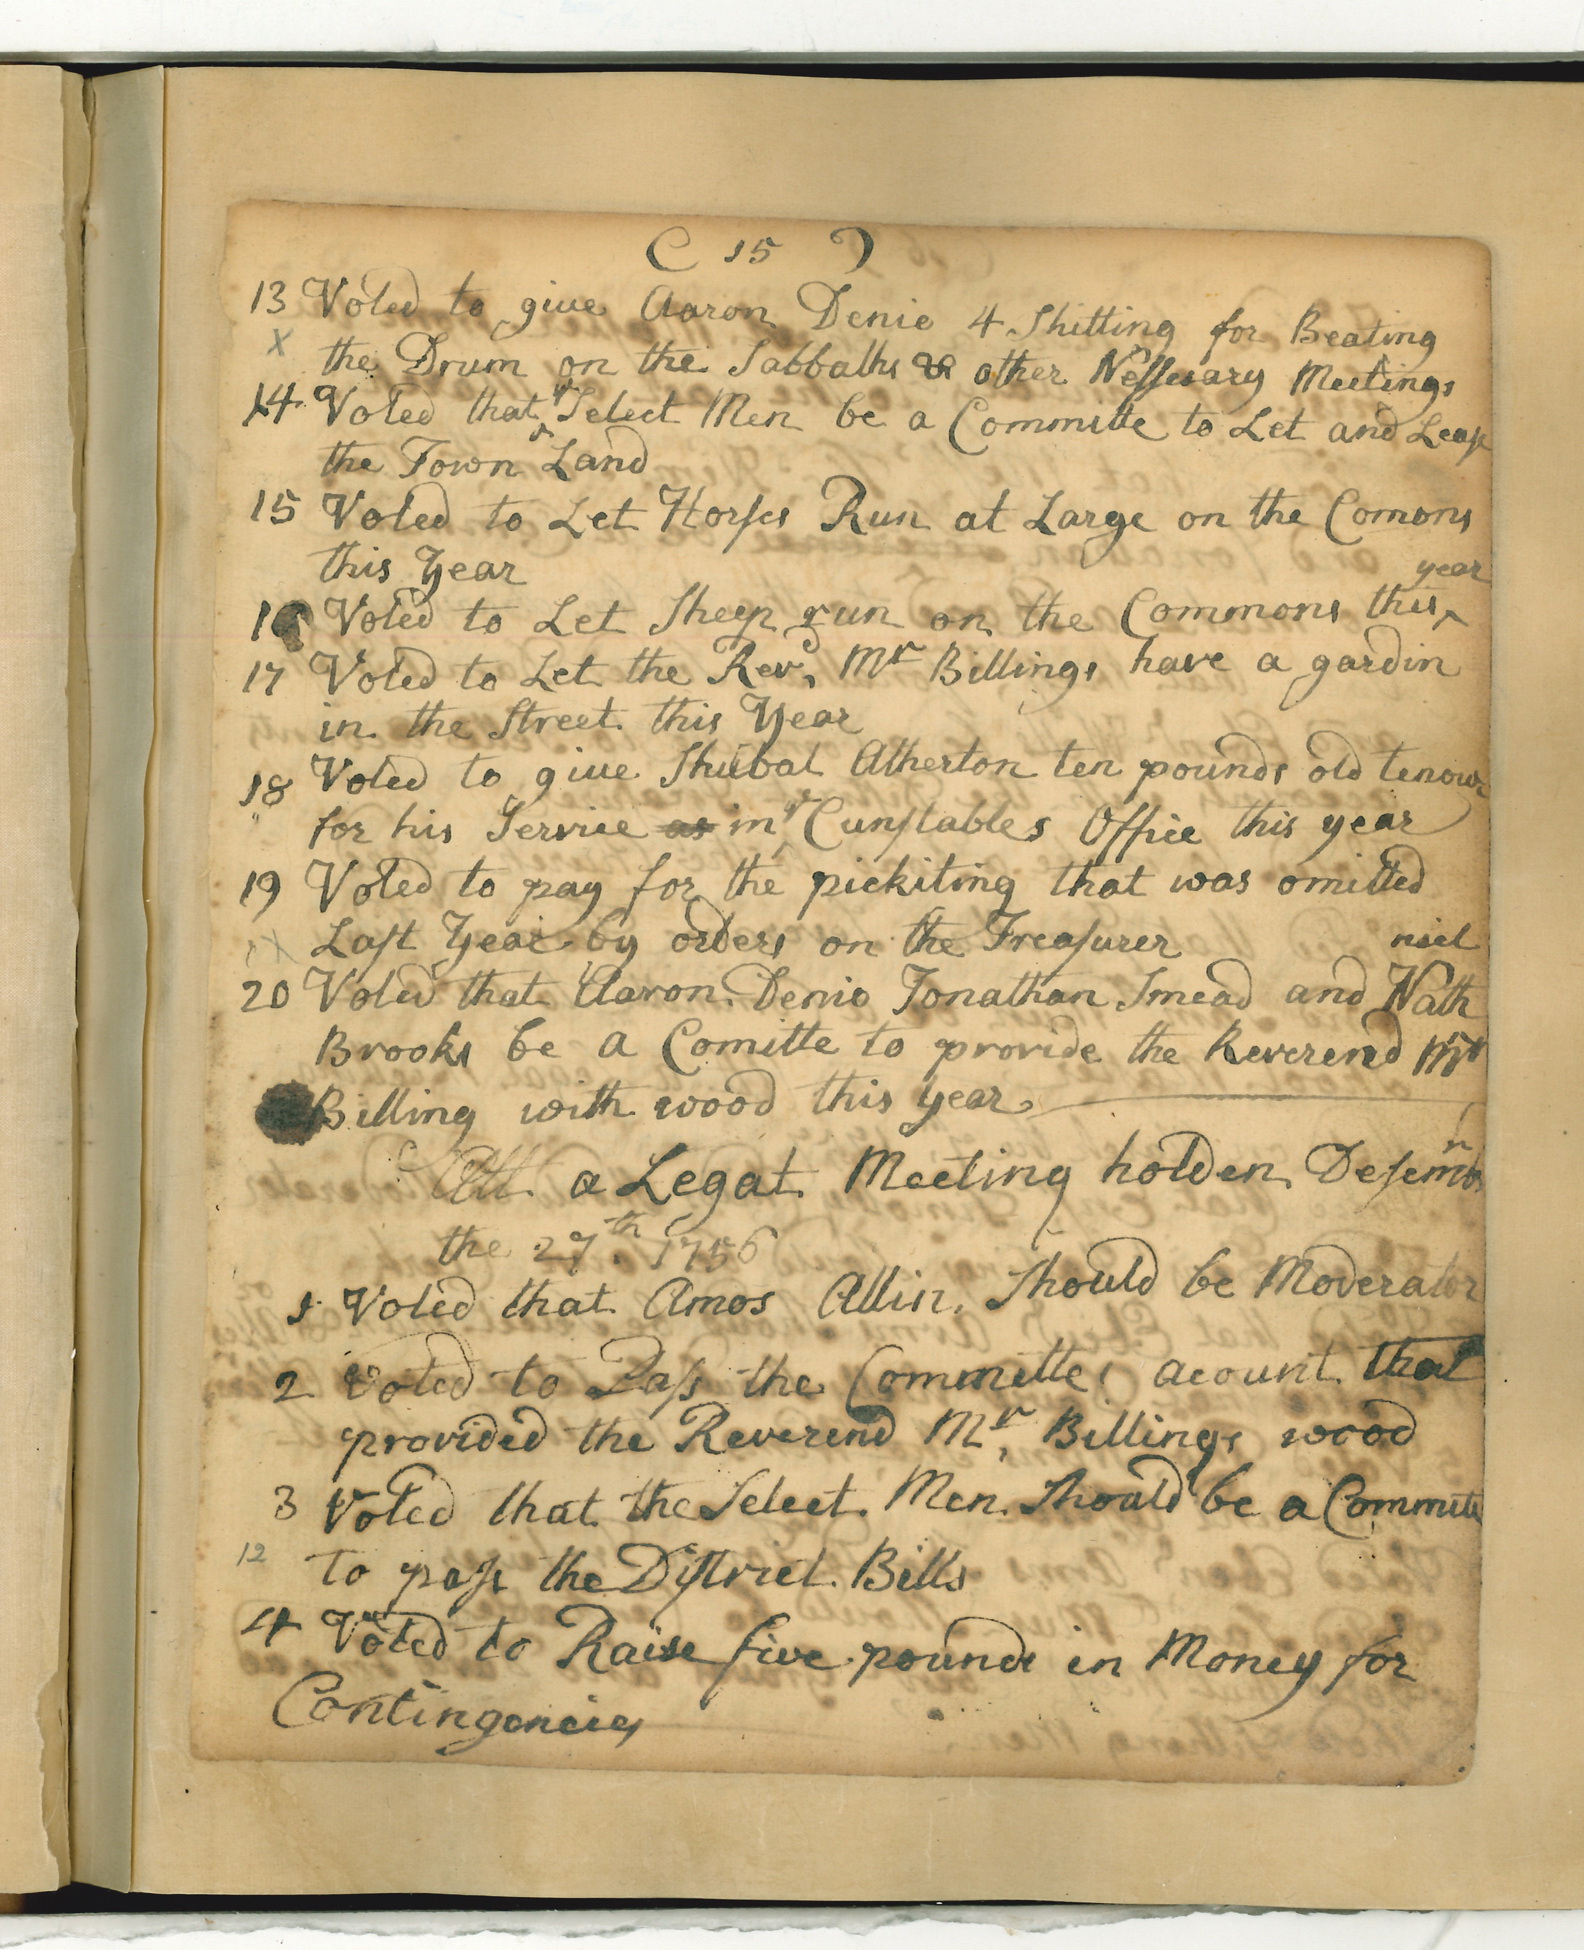 ( 15 )
13 Voted to give Aaron Denio 4 Shilling for Beating
X the Drum on the Sabbaths & other Nessesary Meetings
14 Voted that ye Select Men be a Committe to Let and Lease
the Town Land
15 Voted to Let Horses Run at Large on the Comons
this Year
16 Voted to Let Sheep run on the Commons this year
17 Voted to Let the Revd Mr Billings have a gardin
in the Street this Year
18 Voted to give Shubal Atherton ten pounds old tenour
for his Service as in ye Cunstables Office this year
19 Voted to pay for the pickiting that was omitted
X Last Year by orders on the Treasurer
20 Voted that Aaron Denio Jonathan Smead and Nathniel
Brooks be a Comitte to provide the Reverend Mr
Billing with wood this year
Att a Legal Meeting holden Desembr
the 27th 1756
1 Voted that Amos Allin Should be Moderator
2 Voted to Pass the Committes acount that
provided the Reverend Mr Billings wood
3 Voted that the Select Men Should be a Committe
12 to pass the District Bills
4 Voted to Raise five pounds in Money for
Contingencies